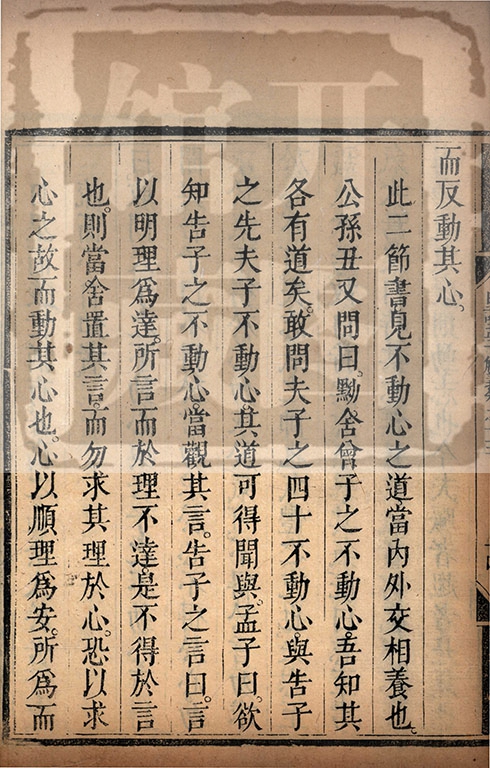 而反動其心。
此二節書見不動心之道當內外交相養也。
公孫丑又問曰。黝舍曾子之不動心。吾知其
各有道矣。敢問夫子之四十不動心。與告子
之先夫子不動心。其道可得聞與。孟子曰。欲
知告子之不動心。當觀其言。告子之言曰。言
以明理爲達。所言而於理不達。是不得於言
也。則當舍置其言。而勿求其理於心。恐以求
心之故。而動其心也。心以順理爲安。所爲而